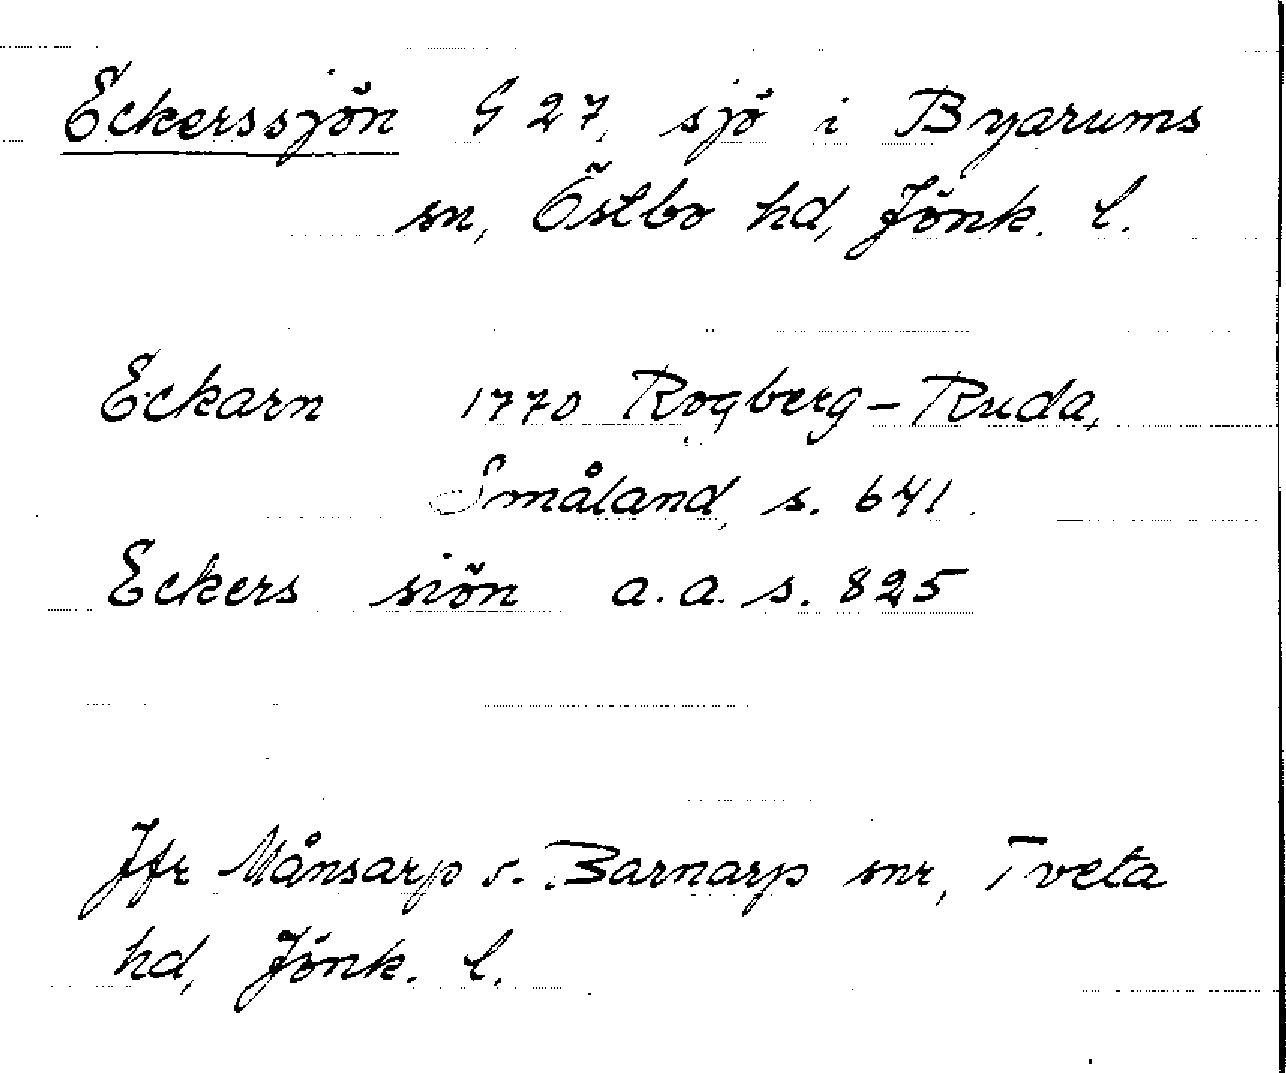 Eckerssjön G 27, sjö i Byarums
sn, Östbo hd, Jönk. l.
Eckarn 1770 Rogberg-Ruda,
Småland, s. 641.
Eckers siön a.a. s. 825
Jfr Månsarp o. Barnarp snr, Tveta
hd, Jönk. l.